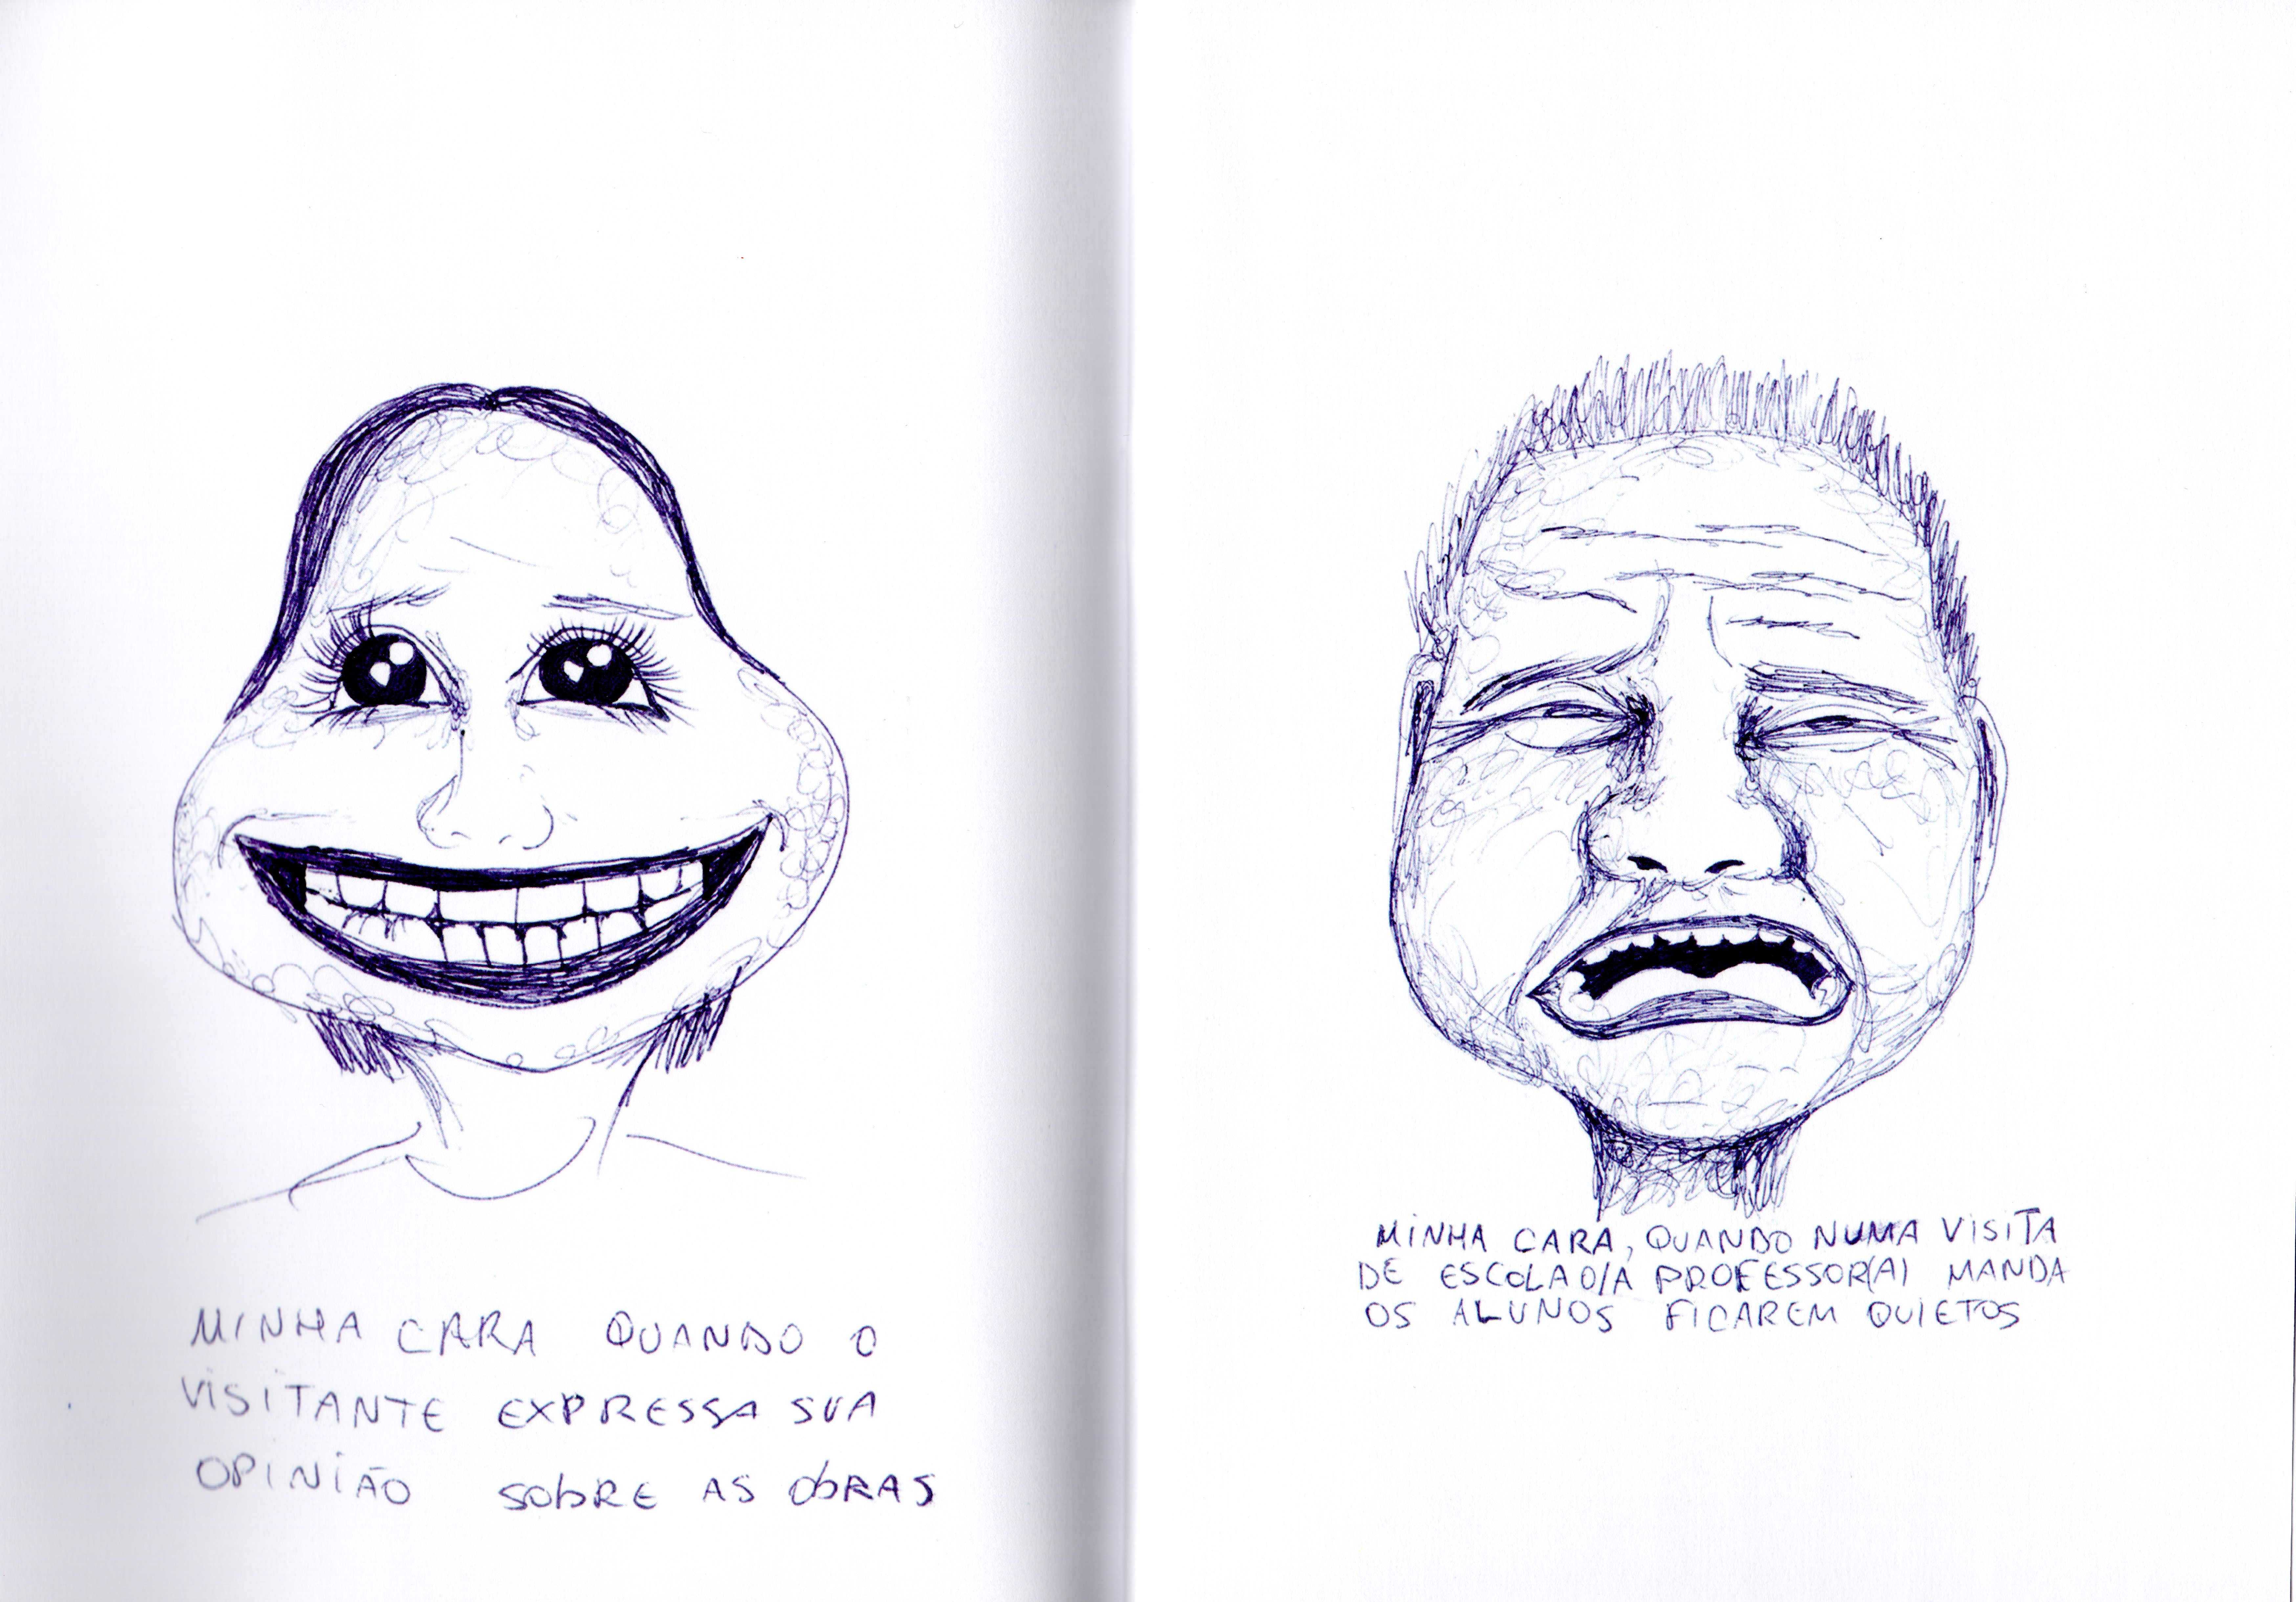 MINHA CARA QUANDO O
VISITANTE EXPRESSA SUA
OPINIÃO SOBRE AS OBRAS
MINHA CARA, QUANDO NUMA VISITA
DE ESCOLA O/A PROFESSOR(A) MANDA
OS ALUNOS FICAREM QUIETOS